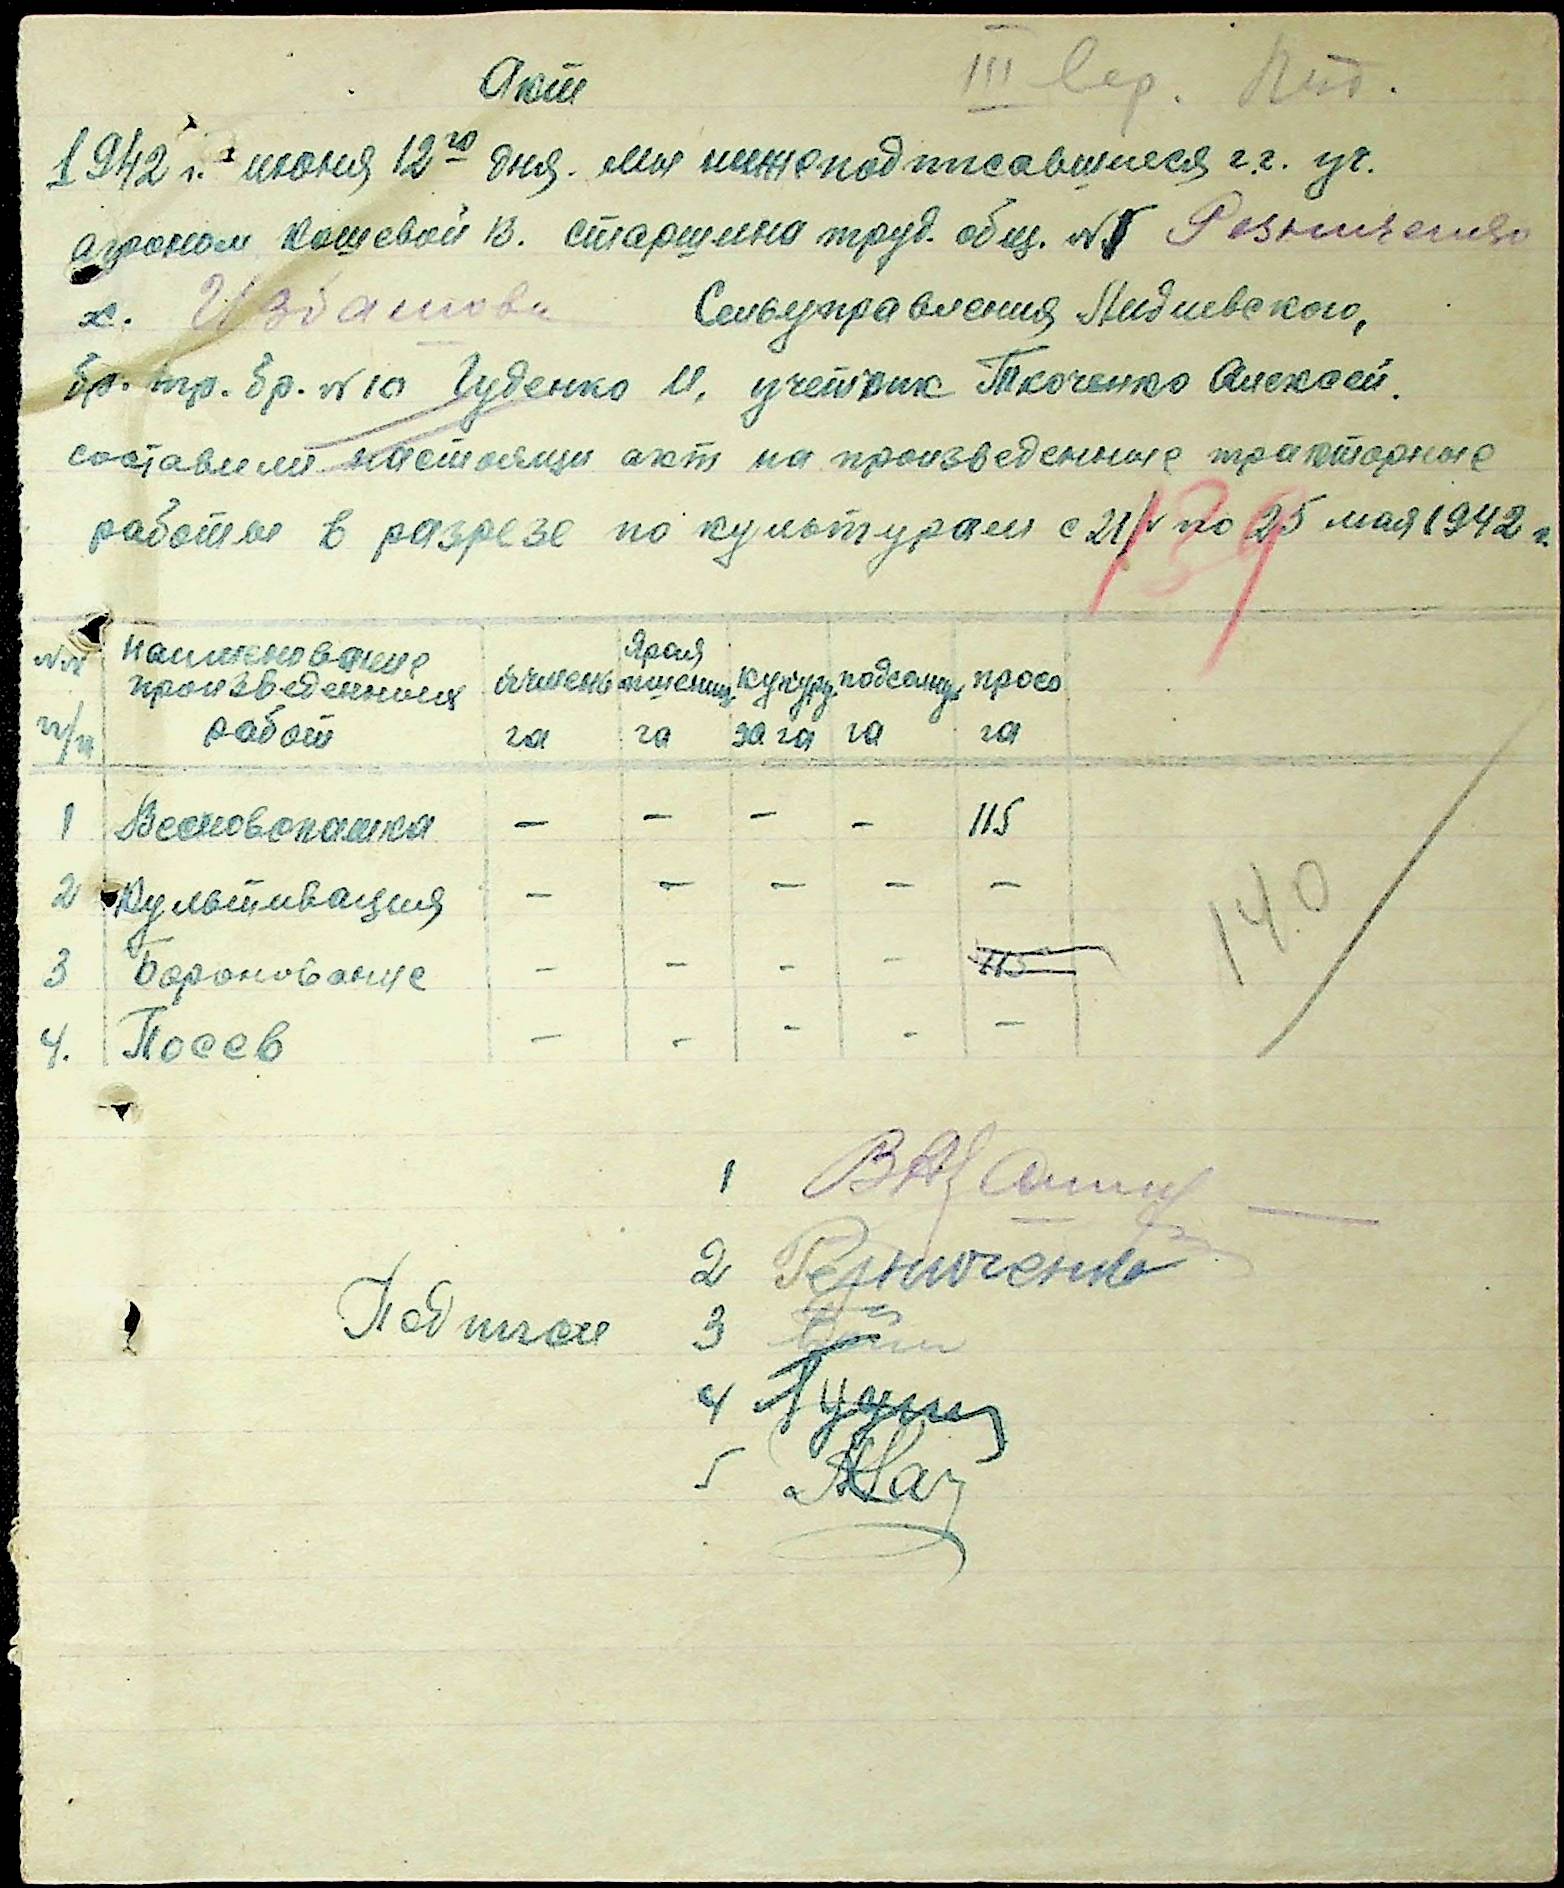 Акт
III
1942 г. июня 12го дня. Мы нижеподписавшиеся г.г. уч.
агроном Кошевой В. старшина труд. общ. №5 Резниченко
х. Сельуправления Лидиевского,
бр. тр. бр. №10 Гуденко И. учетчик Ткоченко Алексей.
составили настоящи акт на произведенные тракторные
работы в разрезе по культурам с 21/V по 25 мая 1942 г.
139
№№ п/п Наименование произведенных работ ячмень га Ярая пшениц га кукуруза га подсолнух га просо га
1 Весновспашка – – – – 115
2 Культивация – – – – –
3 Боронование – – – – 115
4. Посев – – – – –
140
1
Подписи
2 Резниченко
3
4
5